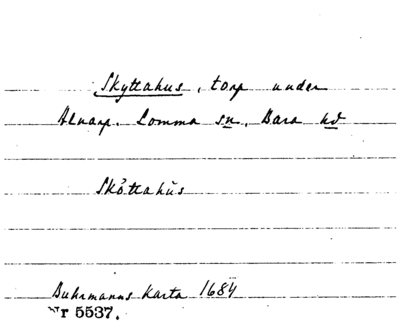 Skyttahus, torp under
Alnarp. Lomma sn, Bara hd
Skŏttahŭs
Buhrmanns Karta 1684
Nr 5537.